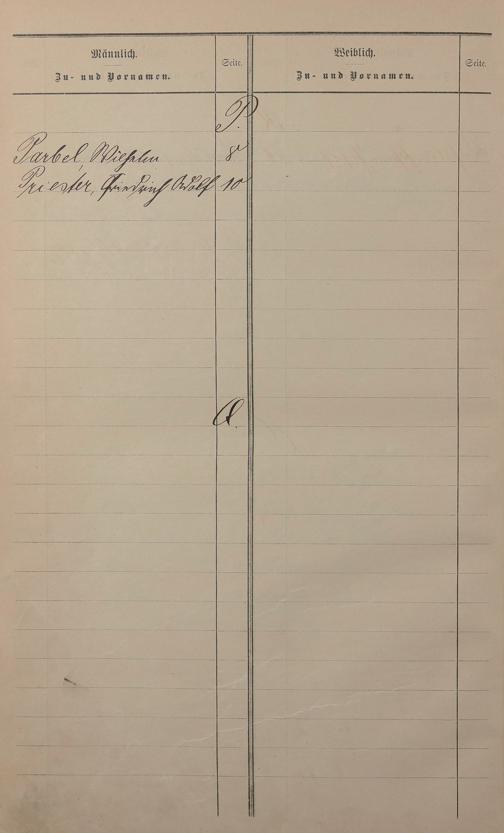 Männlich.
Zu- und Vornamen.
Seite.
Weiblich.
Zu- und Vornamen.
Seite.
P.
Parbel, Wilhelm 8
Priester, Friedrich Adolf 10
Q.